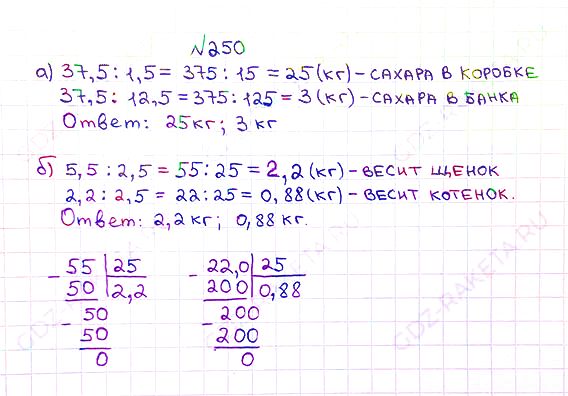 №250
а) 37,5 : 1,5 = 375 : 15 = 25 (кг) – САХАРА В КОРОБКЕ
37,5 : 12,5 = 375 : 125 = 3 (кг) – САХАРА В БАНКА
Ответ: 25 кг; 3 кг
б) 5,5 : 2,5 = 55 : 25 = 2,2 (кг) – ВЕСИТ ЩЕНОК
2,2 : 2,5 = 22 : 25 = 0,88 (кг) – ВЕСИТ КОТЕНОК.
Ответ: 2,2 кг; 0,88 кг.
– 55 | 25
50 | 2,2
– 50
50
0
– 22,0 | 25
200 | 0,88
– 200
200
0
GDZ-RAKETA.RU